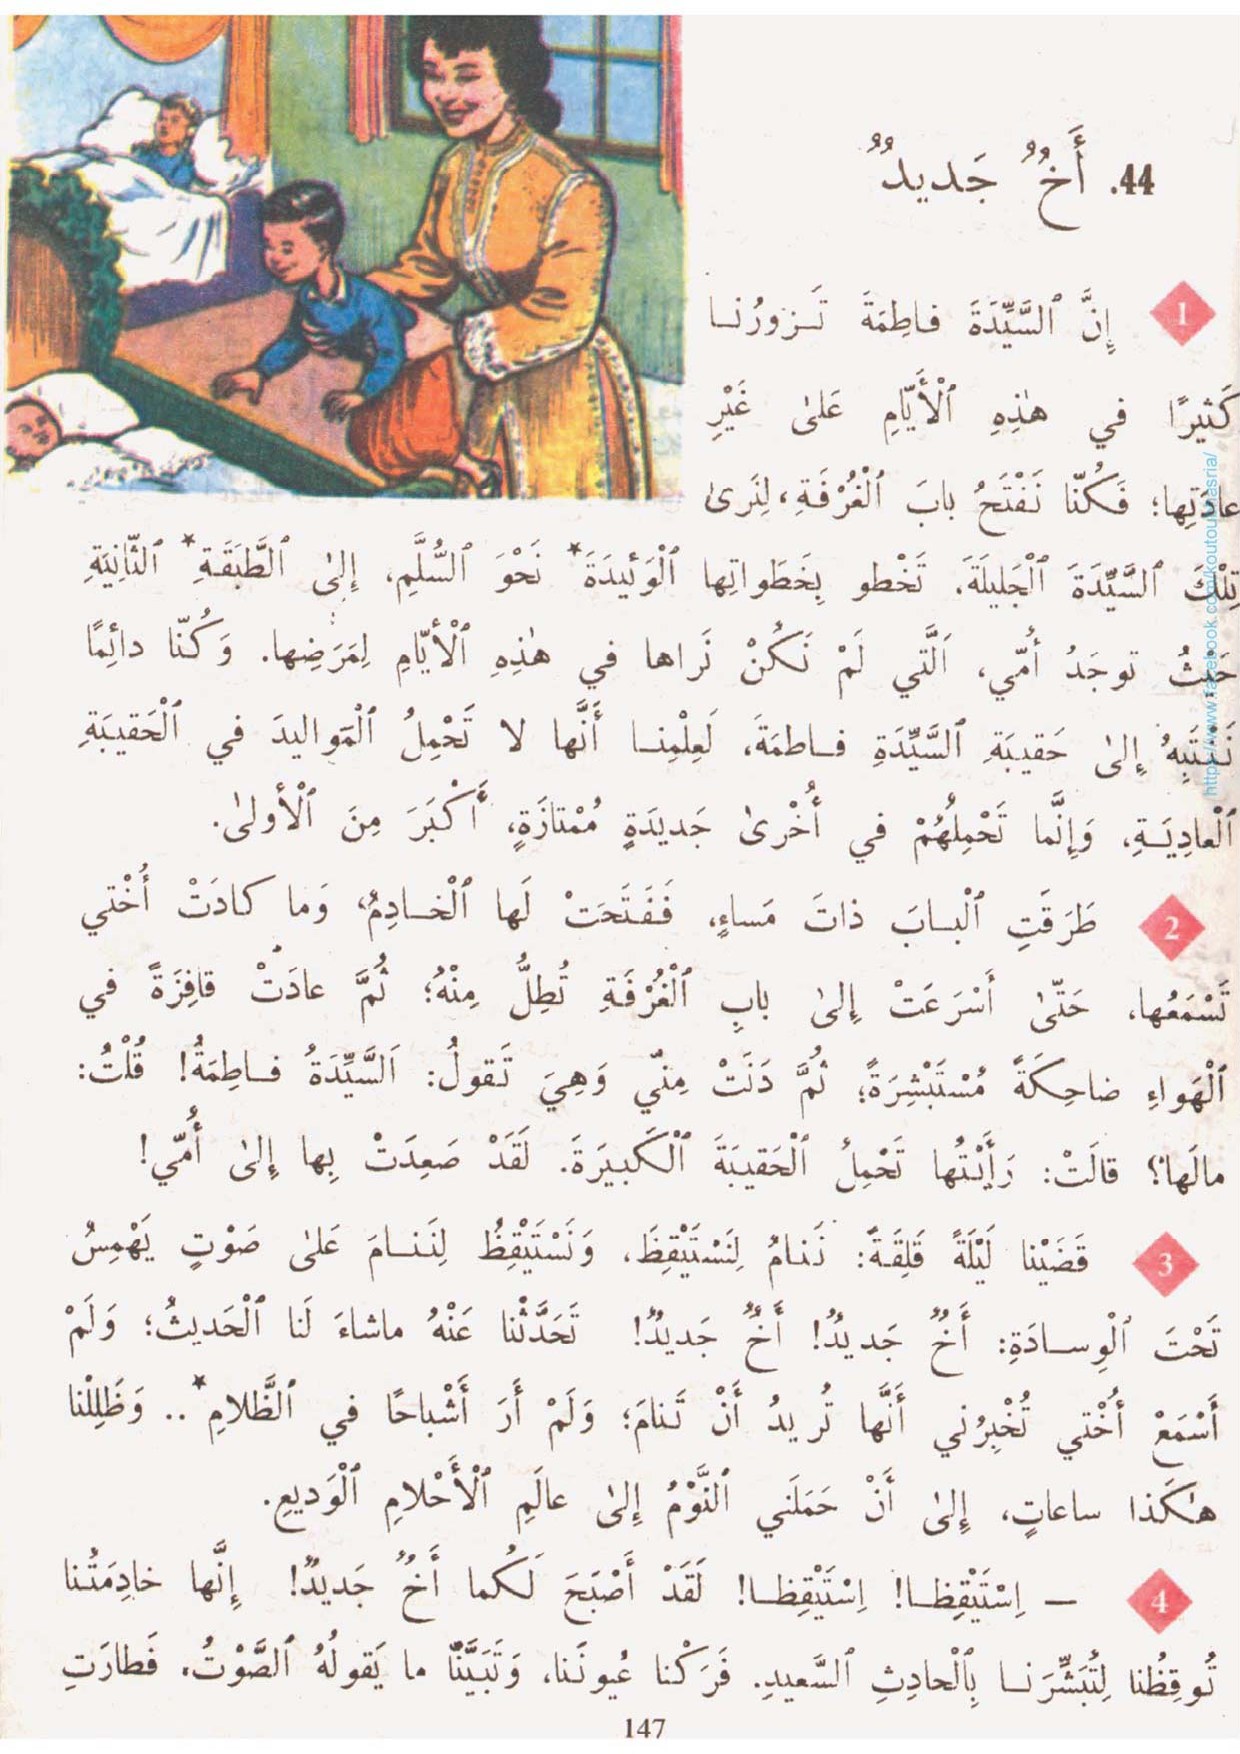 44. أَخٌ جَديدٌ
1 إِنَّ ٱلسَّيِّدَةَ فاطِمَةَ تَـزورُنـا
كَثيرًا في هٰذِهِ ٱلْأَيّامِ عَلىٰ غَيْرِ
عادَتِها؛ فَكُنّا نَفْتَحُ بابَ ٱلْغُرْفَةِ، لِنَرىٰ
تِلْكَ ٱلسَّيِّدَةَ ٱلْجَليلَةَ، تَخْطو بِخَطَواتِها ٱلْوَئيدَةَ* نَحْوَ ٱلسُّلَّمِ، إِلىٰ ٱلطَّبَقَةِ* ٱلثّانِيَةِ
حَيْثُ توجَدُ أُمّي، اَلَّتي لَمْ نَكُنْ نَراها في هٰذِهِ ٱلْأَيّامِ لِمَرَضِها. وَكُنّا دائِمًا
نَنْتَبِهُ إِلىٰ حَقيبَةِ ٱلسَّيِّدَةِ فـاطمَةَ، لَعِلْمِنـا أَنَّها لا تَحْمِلُ ٱلْمَواليدَ في ٱلْحَقيبَةِ
ٱلْعادِيَـةِ، وَإِنَّما تَحْمِلُهُمْ في أُخْرىٰ جَديدَةٍ مُمْتازَةٍ، أَكْبَرَ مِنَ ٱلْأولىٰ.
2 طَرَقَتِ ٱلْبـابَ ذاتَ مَساءٍ، فَفَتَحَتْ لَها ٱلْخـادِمُ، وَما كادَتْ أُخْتي
تَسْمَعُها، حَتّىٰ أَسْرَعَتْ إِلىٰ بابِ ٱلْغُرْفَةِ تُطِلُّ مِنْهُ؛ ثُمَّ عادَتْ قافِزَةً في
ٱلْهَواءِ ضاحِكَةً مُسْتَبْشِرَةً؛ ثُمَّ دَنَتْ مِنّي وَهِيَ تَقولُ: اَلسَّيِّدَةُ فـاطِمَةُ! قُلْتُ:
مالَها؟ قالَتْ: رَأَيْتُها تَحْمِلُ ٱلْحَقيبَةَ ٱلْكَبيرَةَ. لَقَدْ صَعِدَتْ بِها إِلىٰ أُمّي!
3 قَضَيْنا لَيْلَةً قَلِقَةً: نَنامُ لِنَسْتَيْقِظَ، وَنَسْتَيْقِظُ لِنَنـامَ عَلىٰ صَوْتٍ يَهْمِسُ
تَحْتَ ٱلْوِسـادَةِ: أَخٌ جَديدٌ! أَخٌ جَديدٌ! تَحَدَّثْنا عَنْهُ ماشاءَ لَنا ٱلْحَديثُ؛ وَلَمْ
أَسْمَعْ أُخْتي تُخْبِرُني أَنَّها تُريدُ أَنْ تَنامَ؛ وَلَمْ أَرَ أَشْباحًا في ٱلظَّلامِ* .. وَظَلِلْنا
هٰكَذا ساعاتٍ، إِلىٰ أَنْ حَمَلَني ٱلنَّوْمُ إِلىٰ عالَمِ ٱلْأَحْلامِ ٱلْوَديعِ.
4 — اِسْتَيْقِظـا! اِسْتَيْقِظـا! لَقَدْ أَصْبَحَ لَكُما أَخٌ جَديدٌ! إِنَّها خادِمَتُنا
تُوقِظُنا لِتُبَشِّرَنـا بِٱلْحادِثِ ٱلسَّعيدِ. فَرَكْنا عُيونَنا، وَتَبَيَّنّا ما يَقولُهُ ٱلصَّوْتُ، فَطارَتِ
147
https://www.facebook.com/koutoubnasria/